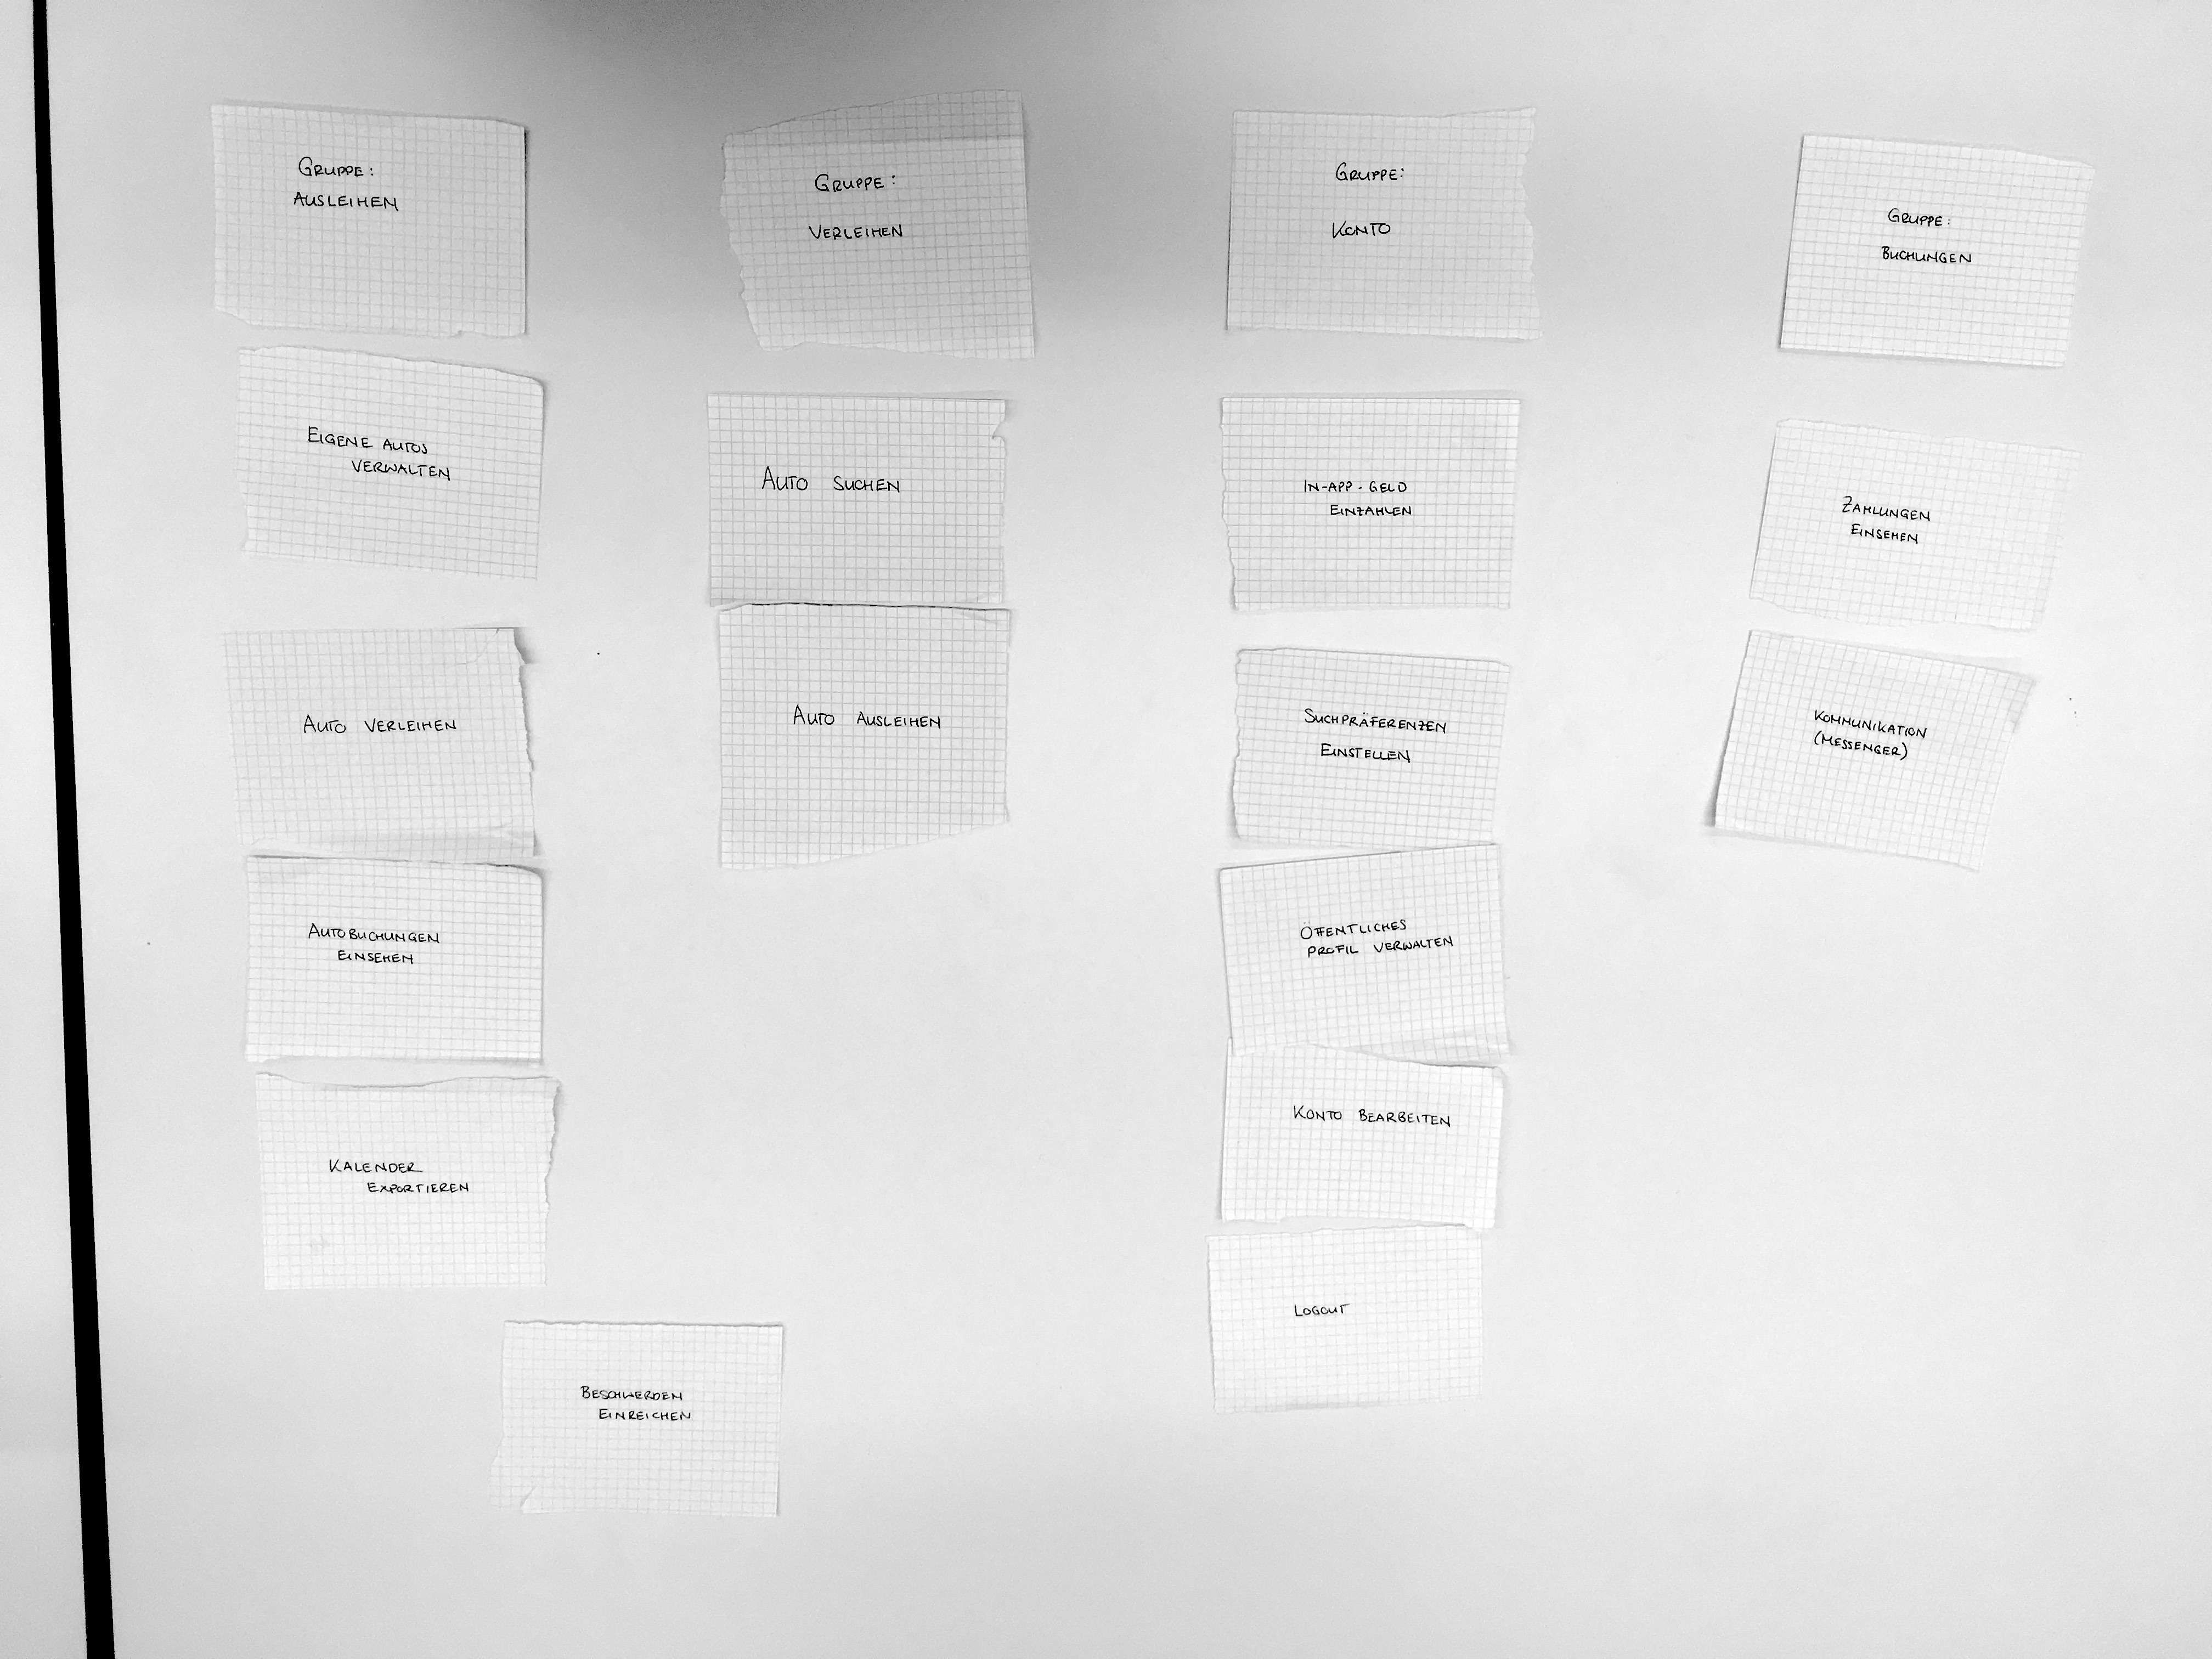 GRUPPE:
AUSLEIHEN
EIGENE AUTOS
VERWALTEN
AUTO VERLEIHEN
AUTOBUCHUNGEN
EINSEHEN
KALENDER
EXPORTIEREN
BESCHWERDEN
EINREICHEN
GRUPPE:
VERLEIHEN
AUTO SUCHEN
AUTO AUSLEIHEN
GRUPPE:
KONTO
IN-APP-GELD
EINZAHLEN
SUCHPRÄFERENZEN
EINSTELLEN
ÖFFENTLICHES
PROFIL VERWALTEN
KONTO BEARBEITEN
LOGOUT
GRUPPE:
BUCHUNGEN
ZAHLUNGEN
EINSEHEN
KOMMUNIKATION
(MESSENGER)